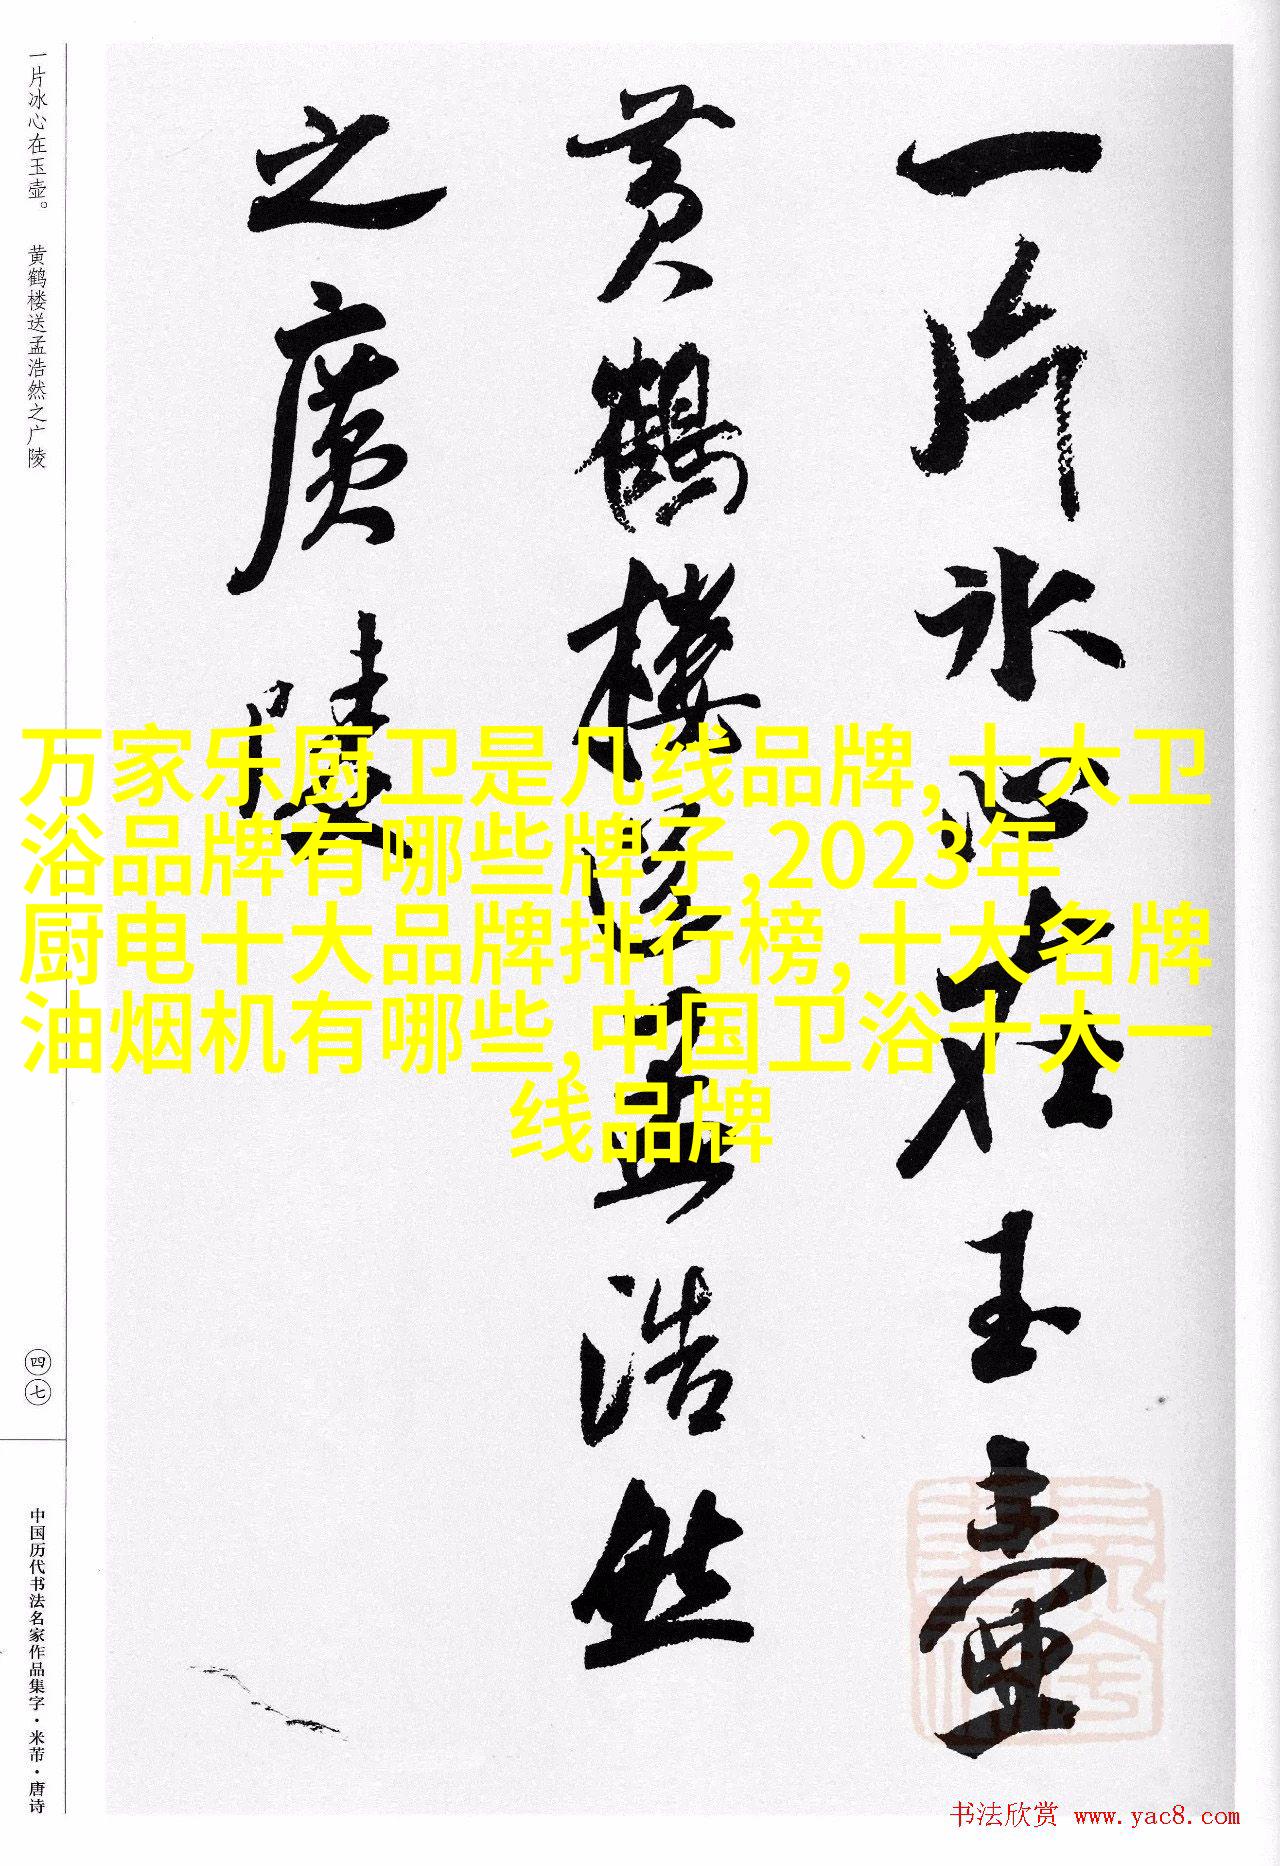 一片冰心在玉壶
黄鹤楼送孟浩然
之广陵
一片冰心在玉壶。 黄鹤楼送孟浩然之广陵
四七
中国历代书法名家作品集字·米芾·唐诗
万家乐厨卫是几线品牌,十大卫
浴品牌有哪些牌子,2023年
厨电十大品牌排行榜,十大名牌
油烟机有哪些,中国卫浴十大一
线品牌
书法欣赏 www.yac8.com